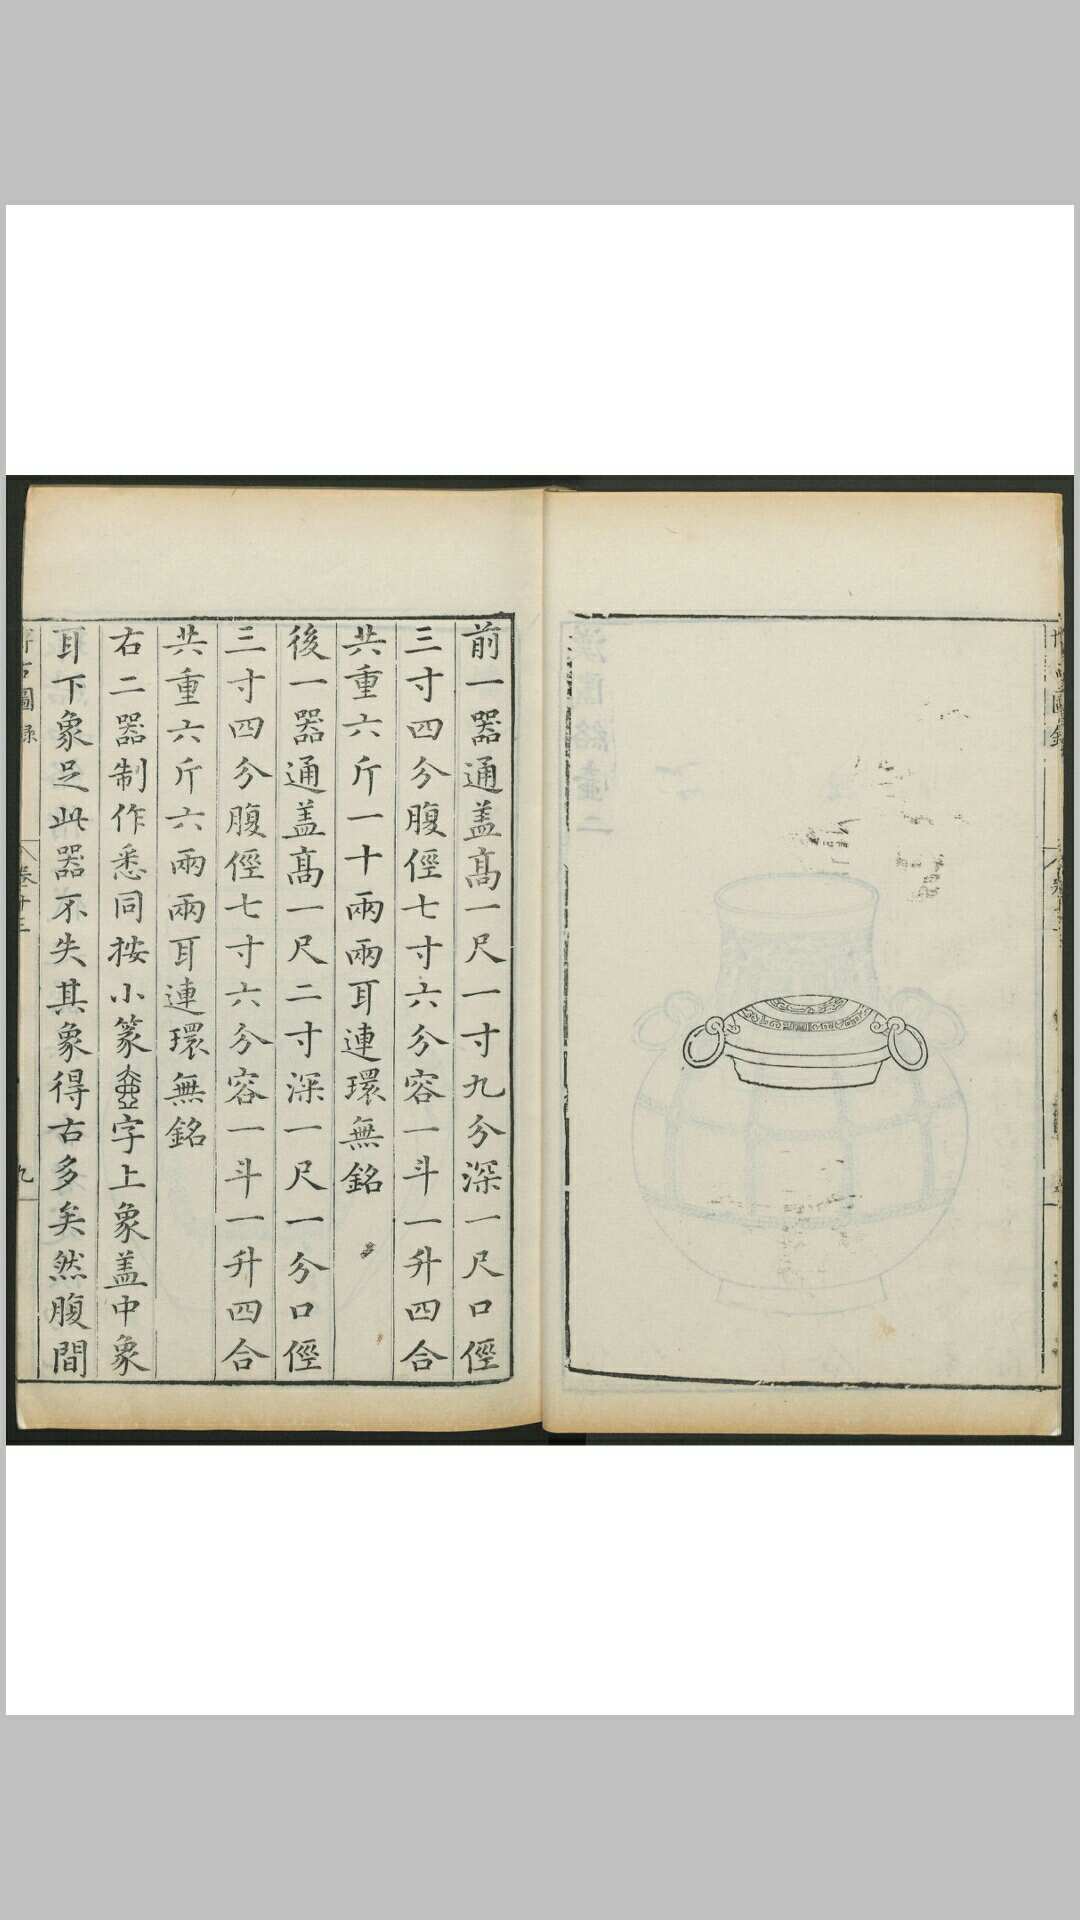 前一器通盖髙一尺一寸九分深一尺口徑
三寸四分腹徑七寸六分容一斗一升四合
共重六斤一十兩兩耳連環無銘
後一器通盖髙一尺二寸深一尺一分口徑
三寸四分腹徑七寸六分容一斗一升四合
共重六斤六兩兩耳連環無銘
右二器制作悉同按小篆字上象盖中象
耳下象足此器不失其象得古多矣然腹間
古圖錄
卷十三
九